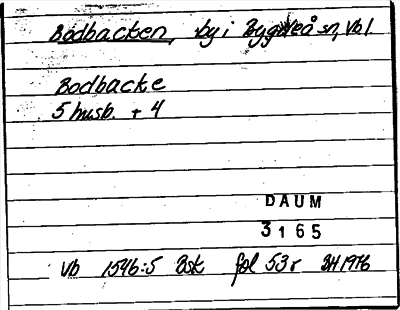 Bodbacken, by i Bygdeå sn, Vbl
Bodbacke
5 husb. + 4
DAUM
3165
Vb 1546:5 Bsk fol 53r BH 1976